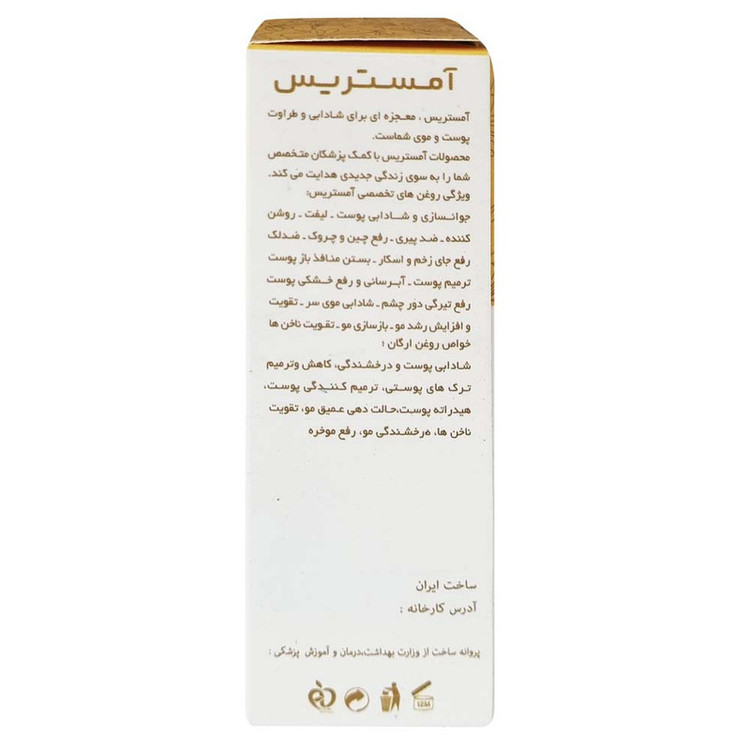 آمستریس
آمستریس ، معجزه ای برای شادابی و طراوت
پوست و موی شماست.
محصولات آمستریس با کمک پزشکان متخصص
شما را به سوی زندگی جدیدی هدایت می کند.
ویژگی روغن های تخصصی آمستریس:
جوانسازی و شادابی پوست ـ لیفت ـ روشن
کننده ـ ضد پیری ـ رفع چین و چروک ـ ضدلک
رفع جای زخم و اسکار ـ بستن منافذ باز پوست
ترمیم پوست ـ آبرسانی و رفع خشکی پوست
رفع تیرگی دور چشم ـ شادابی موی سر ـ تقویت
و افزایش رشد مو ـ بازسازی مو ـ تقویت ناخن ها
خواص روغن ارگان ؛
شادابی پوست و درخشندگی، کاهش وترمیم
ترک های پوستی، ترمیم کنندگی پوست،
هیدراته پوست،حالت دهی عمیق مو، تقویت
ناخن ها، درخشندگی مو، رفع موخره
ساخت ایران
آدرس کارخانه :
پروانه ساخت از وزارت بهداشت،درمان و آموزش پزشکی :
12M